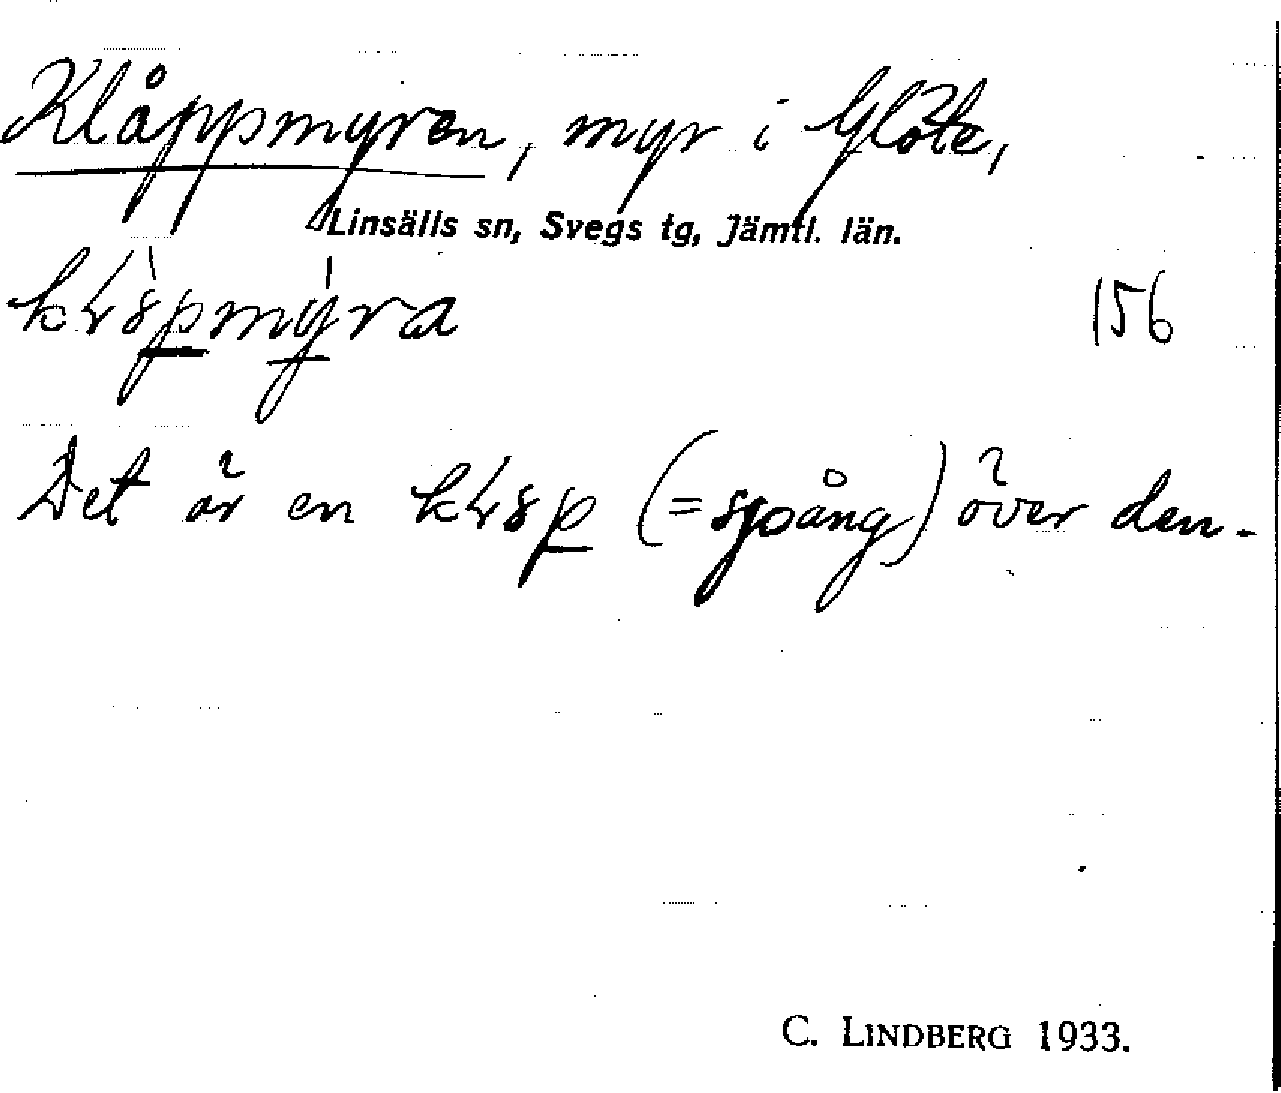 Klåppmyren, myr i Glöte,
Linsälls sn, Svegs tg, Jämtl. län.
156
Det är en (= spång) över den.
C. LINDBERG 1933.